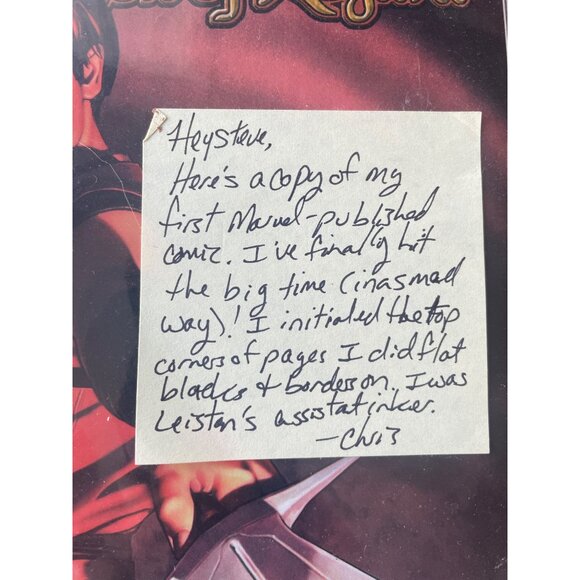 Hey Steve,
Here's a copy of my
first Marvel-published
comic. I've finally hit
the big time (in a small
way)! I initialed the top
corners of pages I did flat
blacks & borders on. I was
Leistan's assistat inker.
-Chris